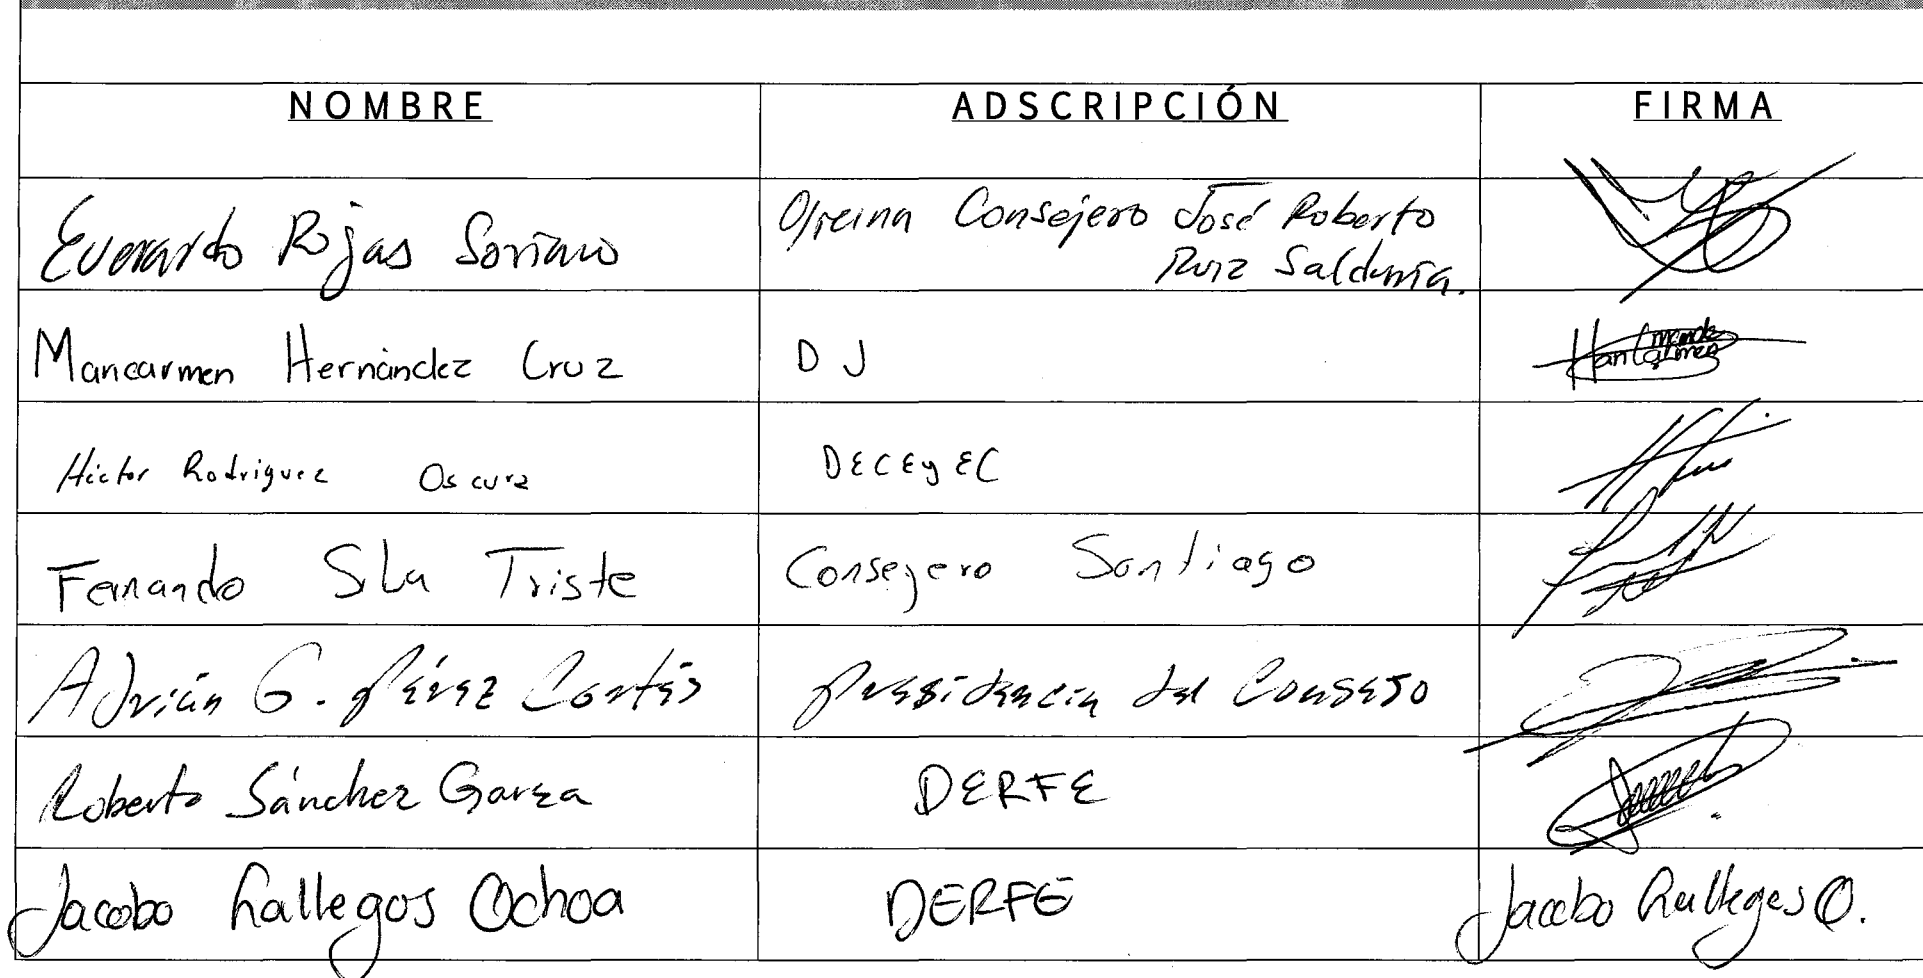 NOMBRE ADSCRIPCIÓN FIRMA
Everardo Rojas Soriano Oficina Consejero José Roberto
Ruiz Saldaña.
Maricarmen Hernández Cruz D J
Héctor Rodriguez DECEyEC
Fernando Sla Triste Consejero Santiago
Adrián G. Pérez Cortés Presidencia del Consejo
Roberto Sánchez Garza DERFE
Jacobo Gallegos Ochoa DERFE Jacobo Gallegos O.